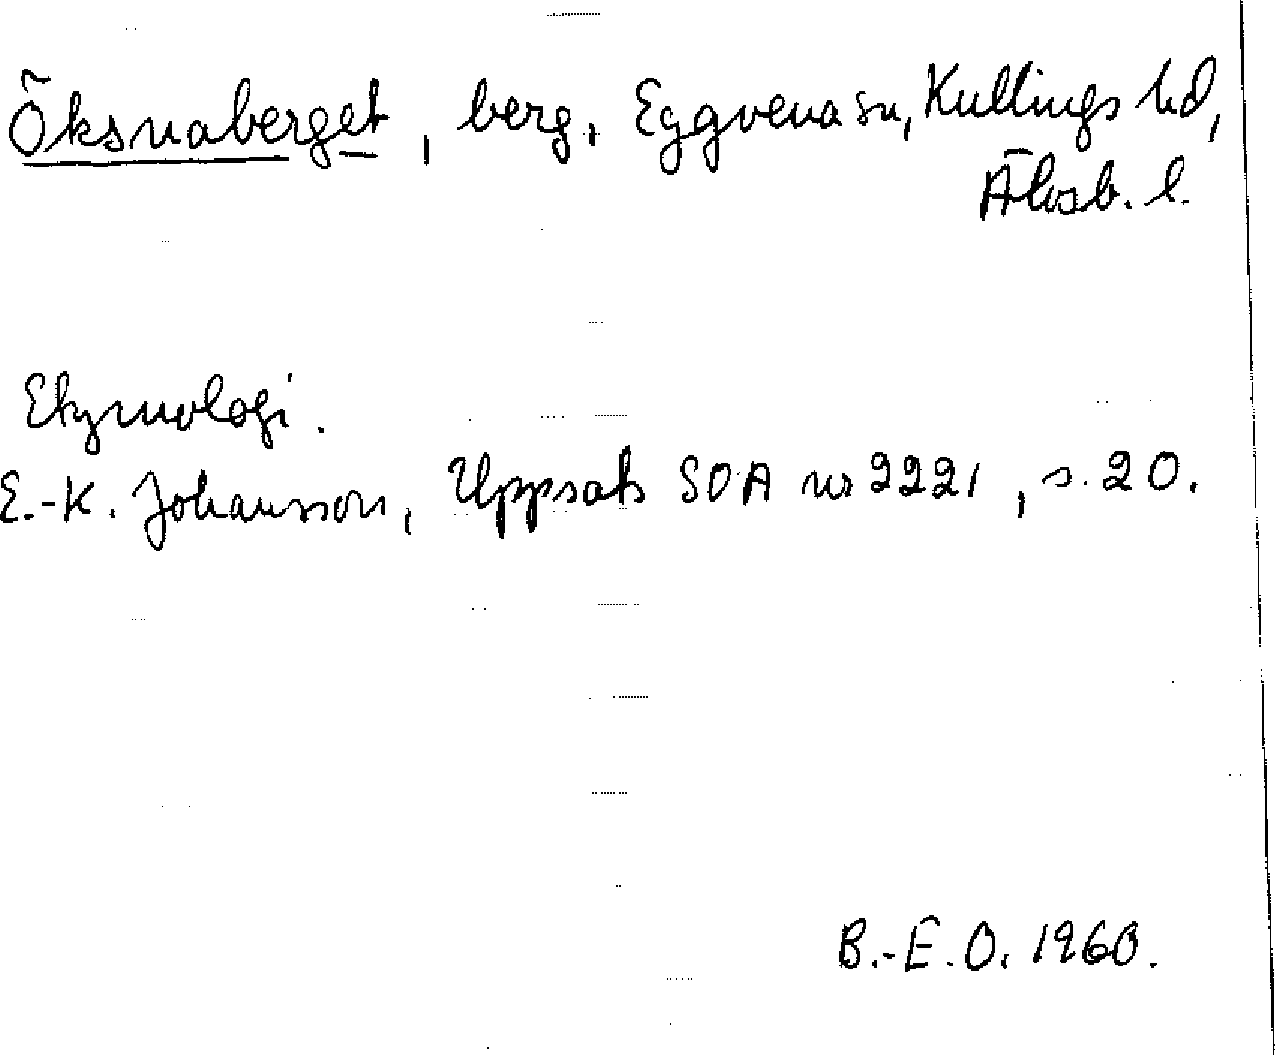 Öksnaberget, berg, Eggvena sn, Kullings hd,
Älvsb. l.
Etymologi.
E.-K. Johansson, Uppsats SOA nr 2221, s. 20.
B.-E.O. 1960.